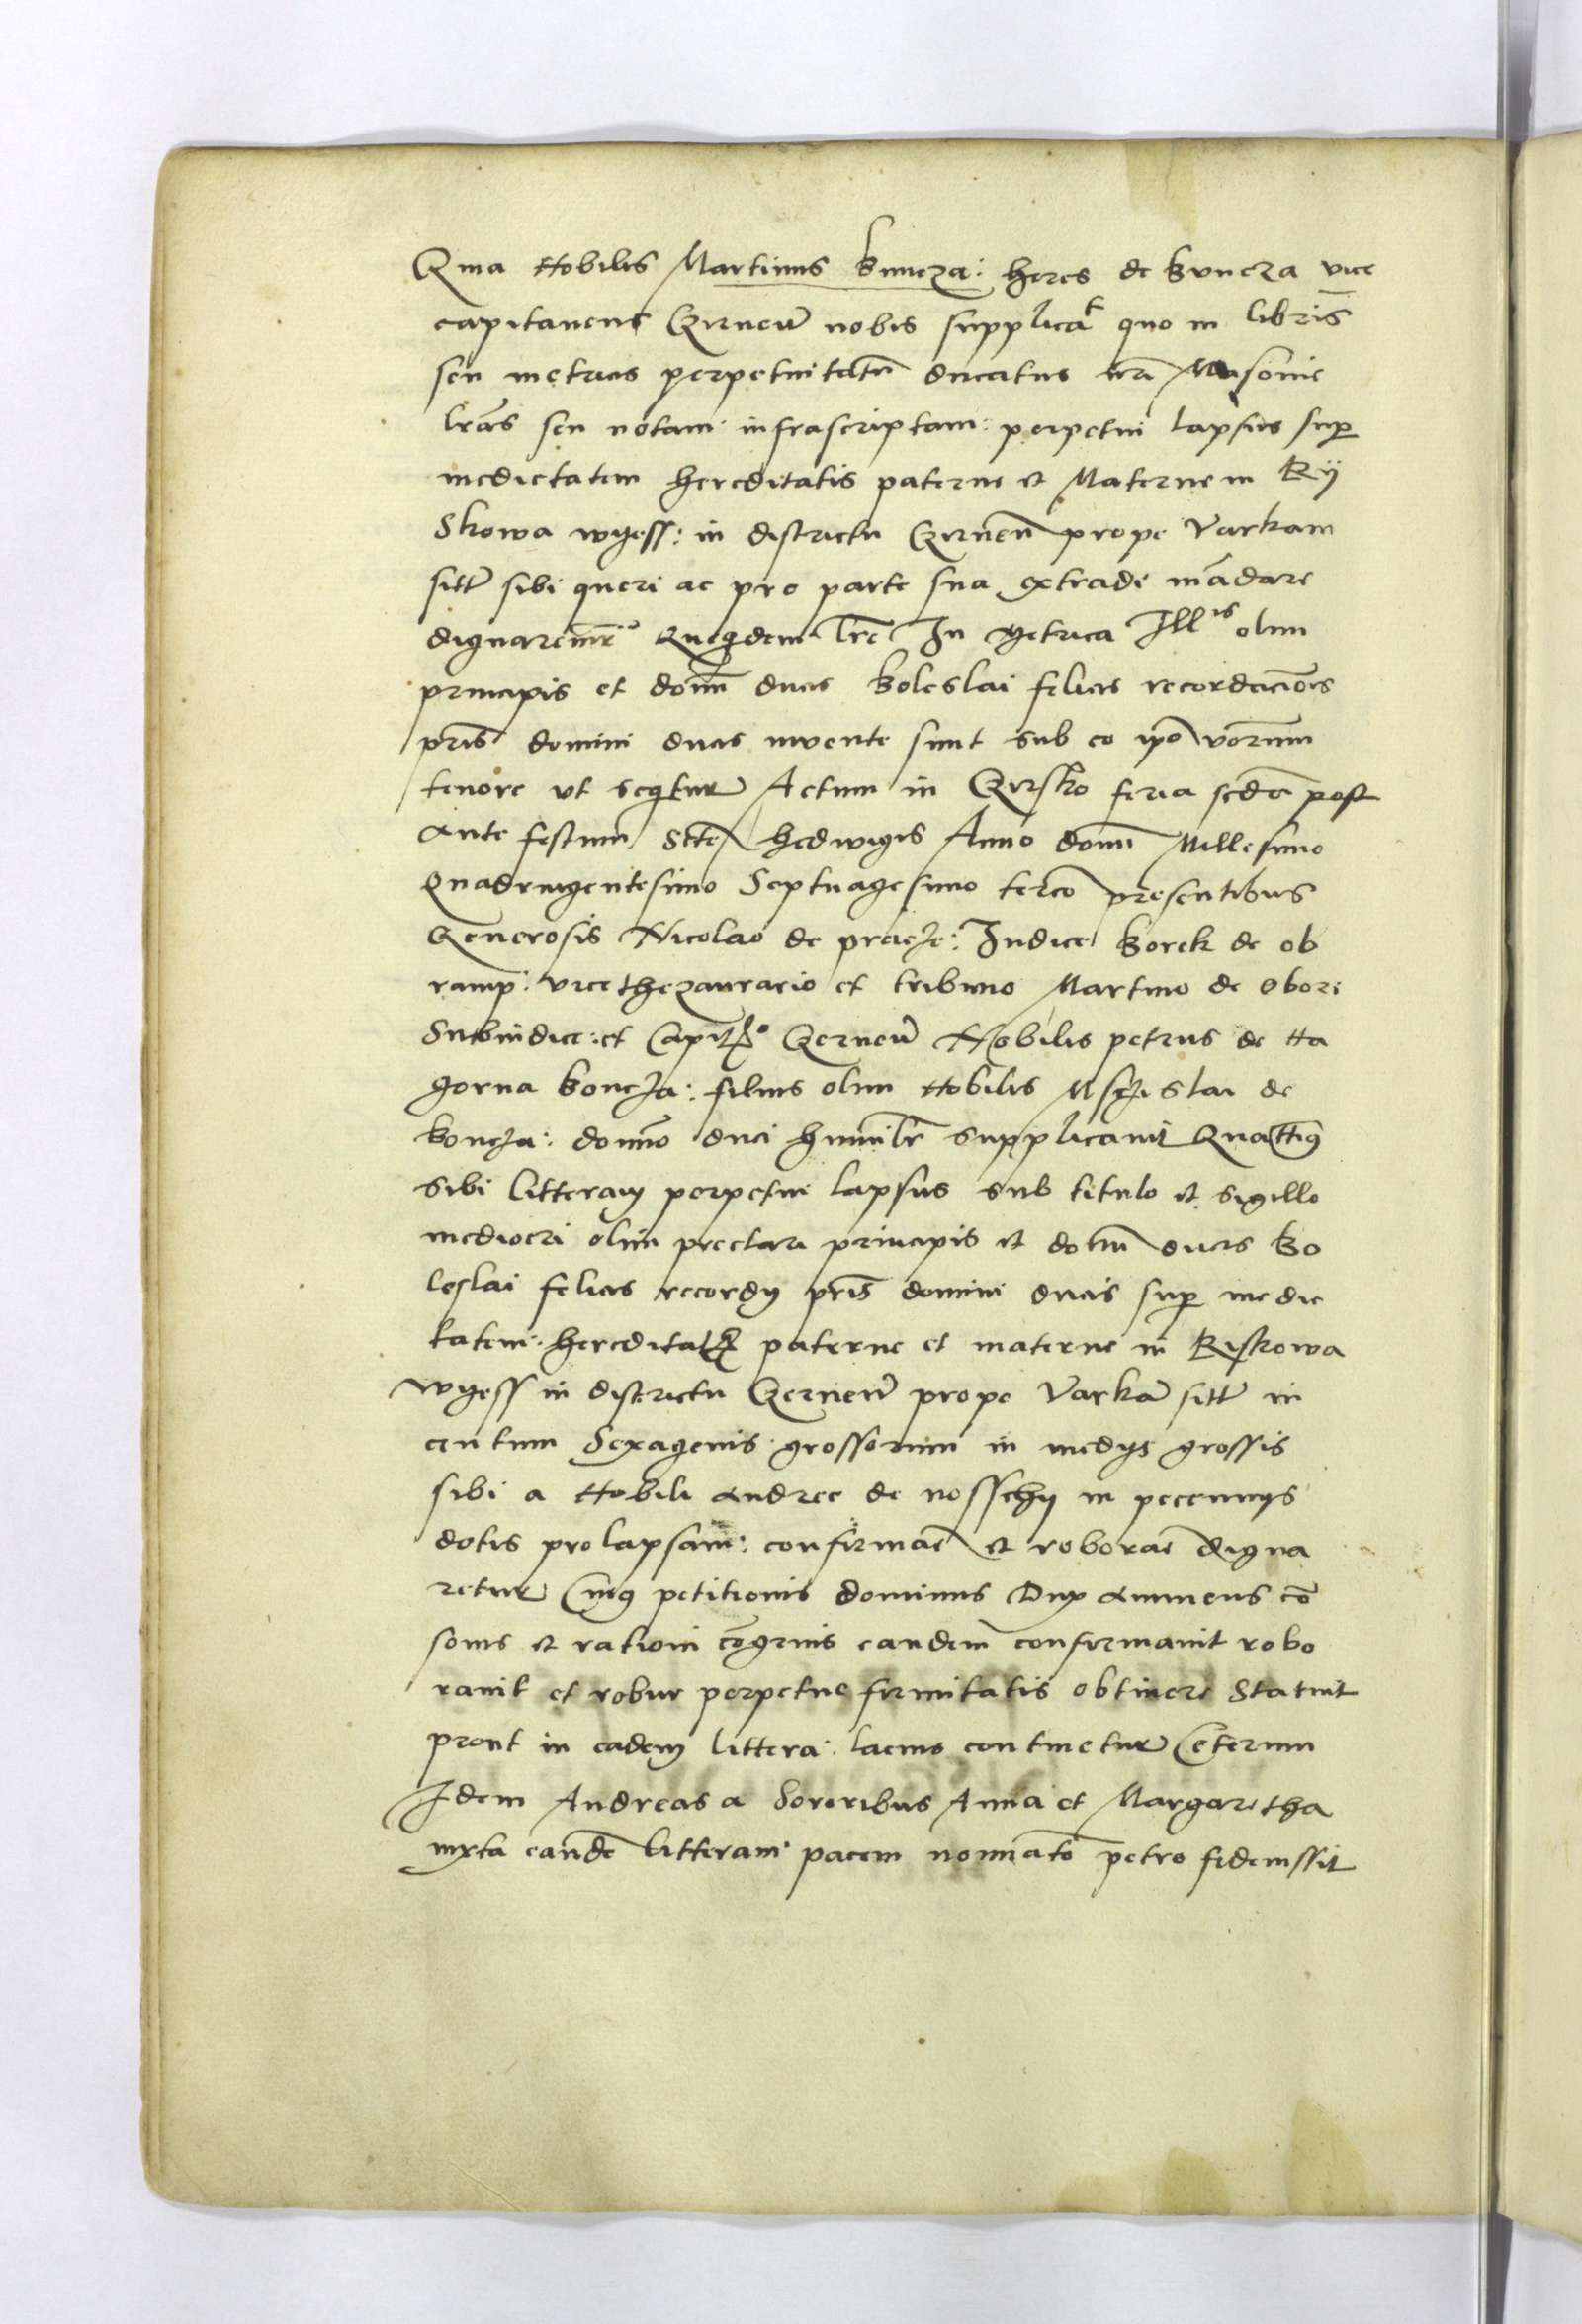 Quia Nobilis Martinus Kuncza: heres de Kuncza vice
capitaneus Czirneñ nobis supplicat quo in libris
seu metricis perpetuitatũ ducatus nrĩ Masovie
lrãs seu notam infrascriptam: perpetui lapsus sup
medietatem hereditatis paterne et Materne in Rij
Skowa wyess: in districtu Czirneñ prope Varkam
sitt̃ sibi queri ac pro parte sua extradi mãdare
dignaremr̃ Quequidem lrẽ In Metrica Illis olim
principis et domĩ ducis Boleslai felicis recordaciõis
pris̃ domini ducis invente sunt sub eo ipõ vorum
tenore vt seqtur Actum in Czirsko feria scdã post
ante festum Sctẽ Hedwigis Anno domĩ Millesimo
Quadringentesimo Septuagesimo tercõ presentibus
Generosis Nicolao de pracze: Iudice Borek de ob
ramp: vicethezaurario et tribuno Martino de Obori
Subiudice: et Capitño Czerneñ Nobilis petrus de Na
gorna Koncza: filius olim Nobilis Msczislai de
koncza: domĩno duci humilr̃ supplicavit Quatt9
sibi litteram perpetui lapsus sub titulo et sigillo
mediocri olim preclari principis et domĩ ducis Bo
leslai felicis recordy pris̃ domini ducis sup medie
tatem hereditatis paterne et materne in Riskowa
wyess in districtu Czerneñ prope Varkã sitt̃ in
centum Sexagenis grossorum in medys grossis
sibi a Nobili Andree de nosschy in pecunnys
dotis prolapsam: confirmaẽ et roboraẽ digna
retur Cuiq9 petitionis dominus Dux annuens cõ
sonis et rationi cõgruis eandem confirmavit robo
ravit et robur perpetue firmitatis obtinere Statuit
prout in eadem littera lacius continetur Ceterum
Idem Andreas a Sororibus Anna et Margaretha
iuxta eandẽ litteram pacem nominatõ petro fideiussit